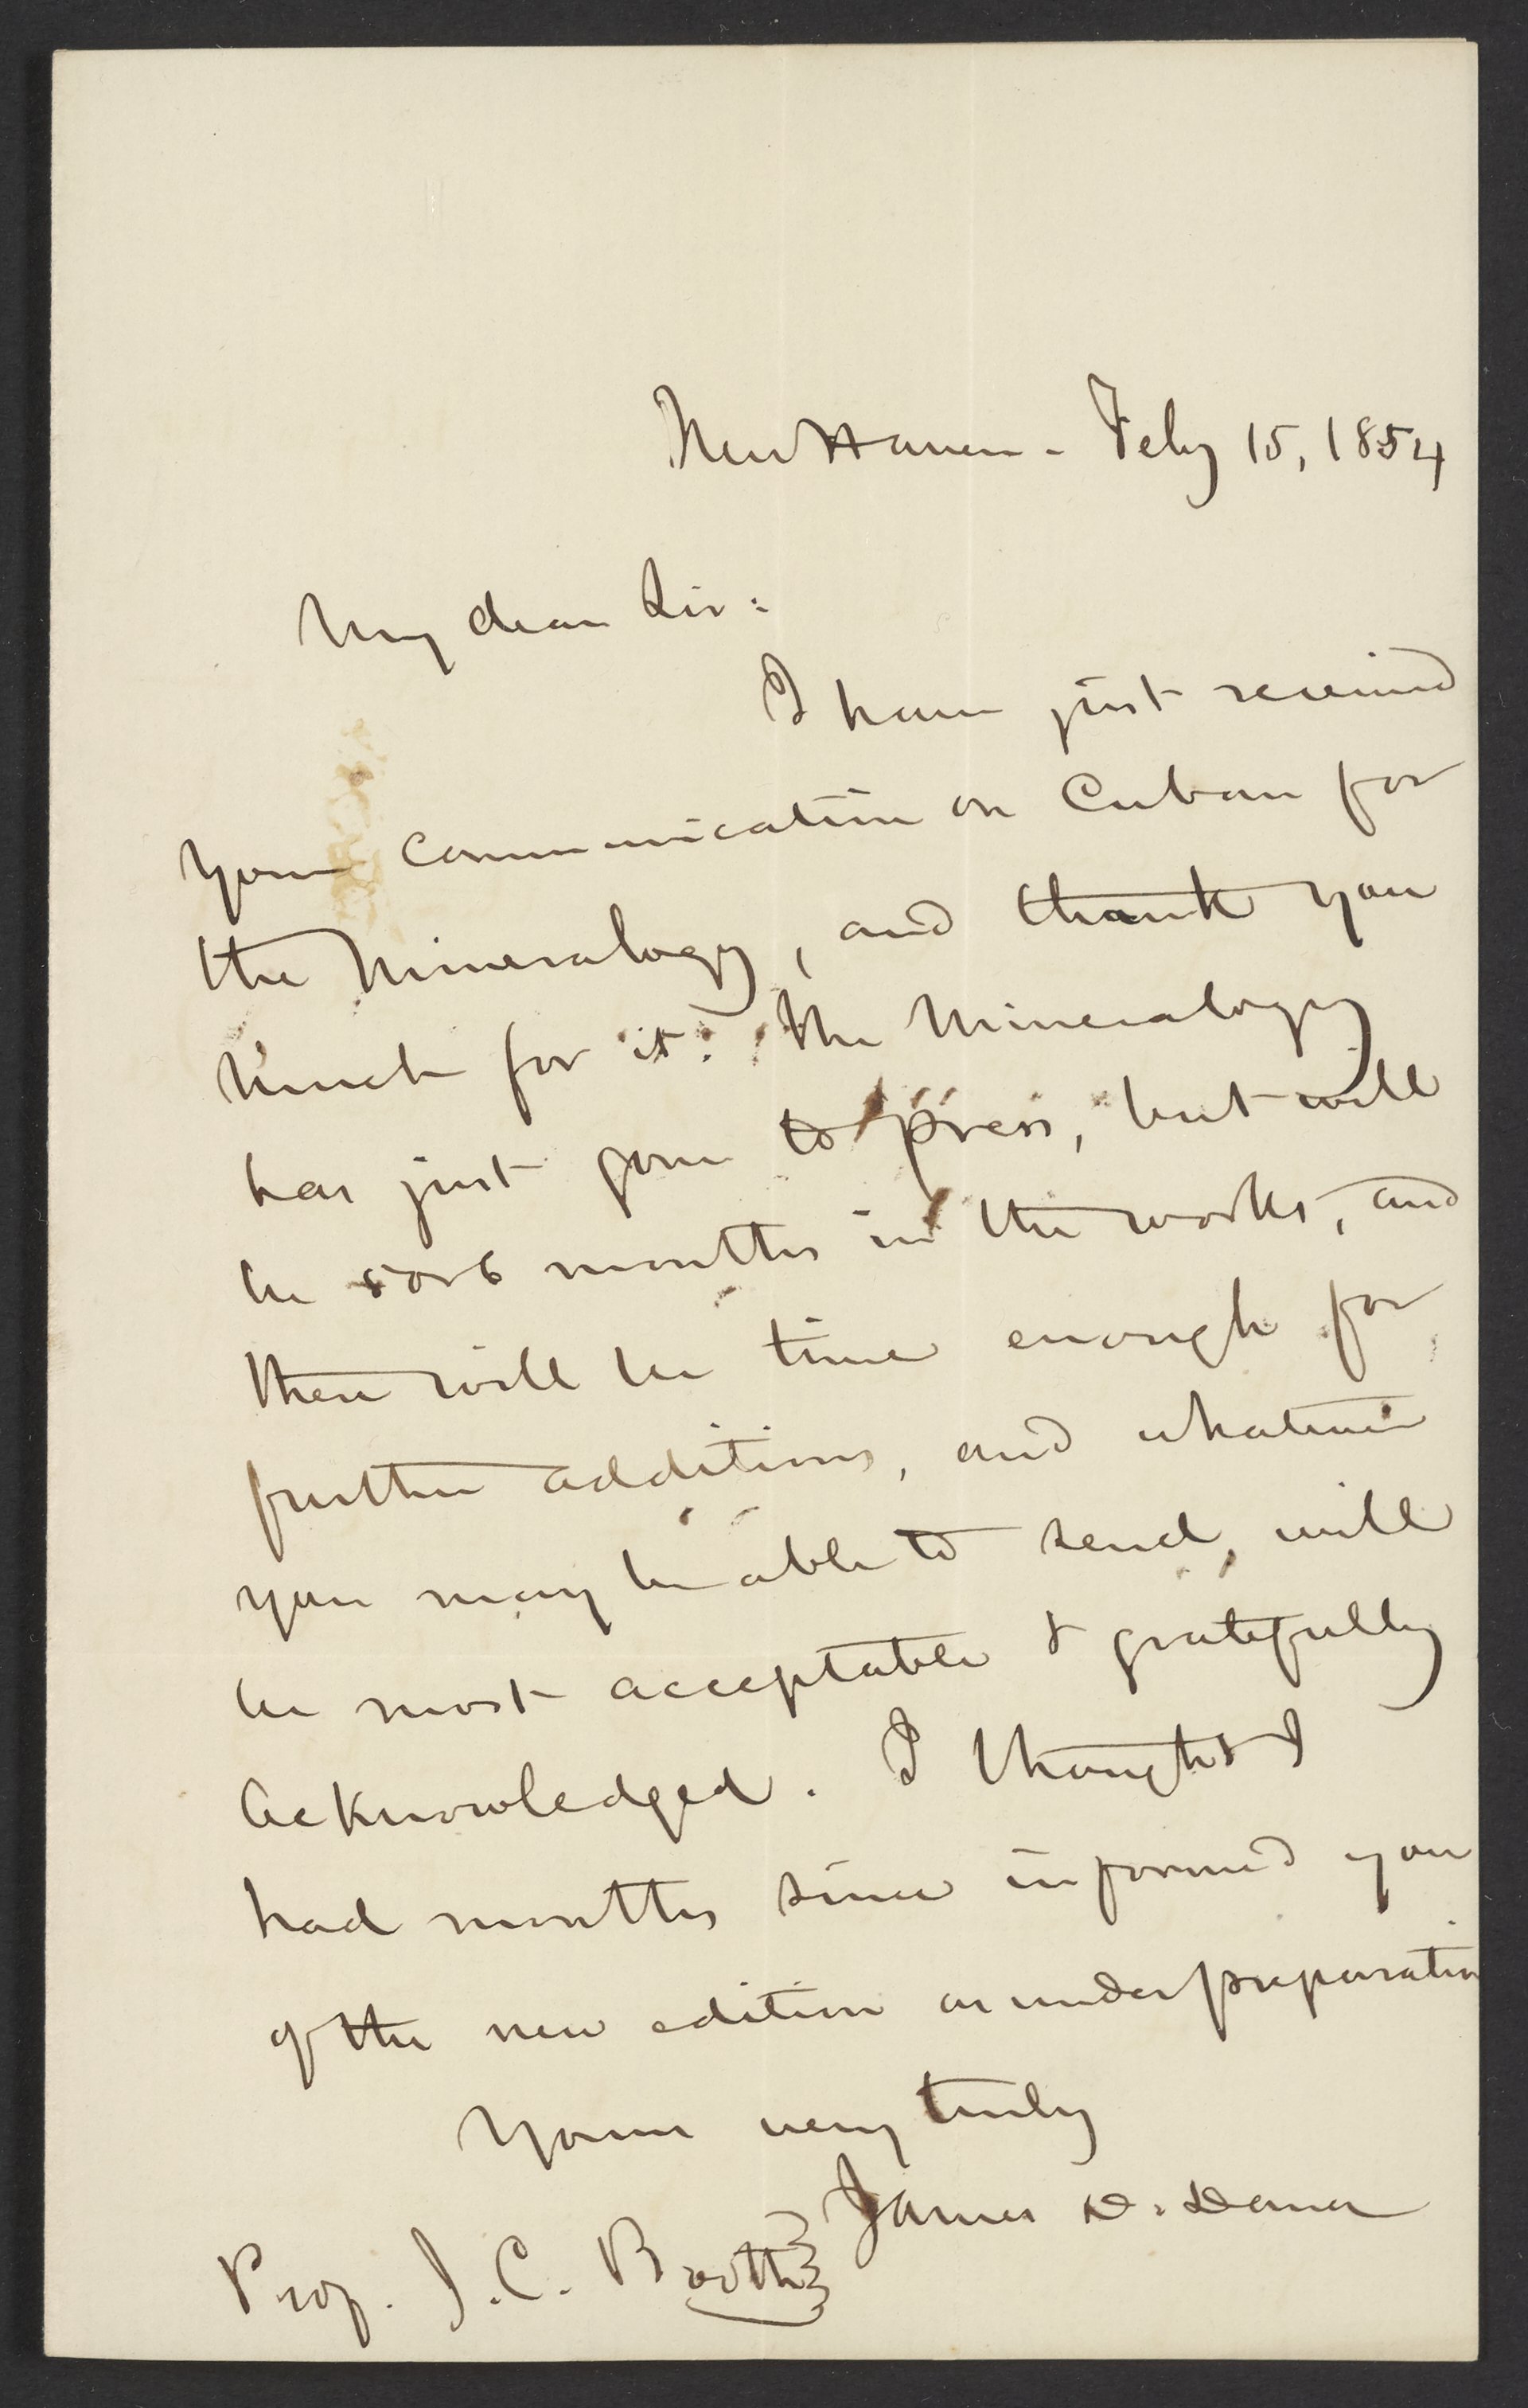 New Haven - Feby 15, 1854
My dear Sir:
I have just received
your communication on Cuban for
the Mineralogy, and thank you
much for it. The Mineralogy
has just gone to press, but will
be 5 or 6 months in the works, and
there will be time enough for
further additions, and whatever
you may be able to send, will
be most acceptable & gratefully
acknowledged. I thought I
had months since informed you
of the new edition as under preparation
Yours very truly
James D. Dana
Prof. J. C. Booth